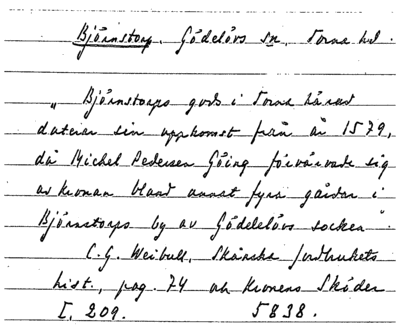 Björnstorp, Gödelövs sn, Torna hd.
"Björnstorps gods i Torna härad
daterar sin uppkomst från år 1579,
då Michel Pedersen Göing förvärvade sig
av kronan bland annat fyra gårdar i
Björnstorps by av Gödelövs socken".
C.G. Weibull, Skånska jordbrukets
hist., pag. 74 och Kronens Skøder
I, 209. 5838.